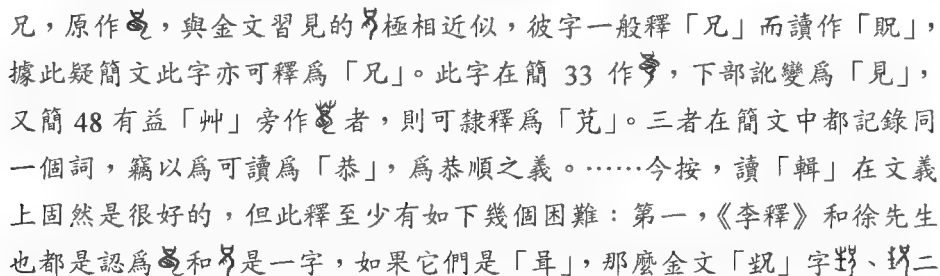 兄，原作，與金文習見的極相近似，彼字一般釋「兄」而讀作「貺」，
據此疑簡文此字亦可釋爲「兄」。此字在簡 33 作，下部訛變爲「見」，
又簡 48 有益「艸」旁作者，則可隸釋爲「芤」。三者在簡文中都記錄同
一個詞，竊以爲可讀爲「恭」，爲恭順之義。……今按，讀「輯」在文義
上固然是很好的，但此釋至少有如下幾個困難：第一，《李釋》和徐先生
也都是認爲和是一字，如果它們是「咠」，那麼金文「」字、二